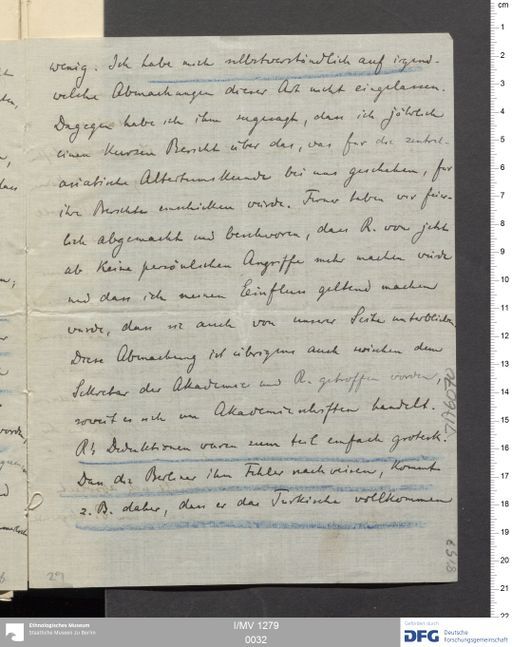 wenig. Ich habe mich selbstverständlich auf irgend-
welche Abmachungen dieser Art nicht eingelassen.
Dagegen habe ich ihm zugesagt, dass ich jährlich
einen kurzen Bericht über das, was für die zentral-
asiatische Altertumskunde bei uns geschehen, für
ihre Berichte einschicken würde. Ferner haben wir feier-
lich abgemacht und beschworen, dass R. von jetzt
ab keine persönlichen Angriffe mehr machen würde
und dass ich meinen Einfluss geltend machen
würde, dass sie auch von unserer Seite unterblieben.
Diese Abmachung ist übrigens auch zwischen dem
Sekretar der Akademie und R. getroffen worden,
soweit es sich um Akademieschriften handelt.
R's Deduktionen waren zum teil einfach grotesk.
Dass die Berliner ihm Fehler nachweisen, kommt
z. B. daher, dass er das Türkische vollkommen
29
cm
1
2
3
4
5
6
7
8
9
10
11
12
13
14
15
16
17
18
19
20
21
22
Ethnologisches Museum
Staatliche Museen zu Berlin
I/MV 1279
0032
Gefördert durch
DFG
Deutsche
Forschungsgemeinschaft